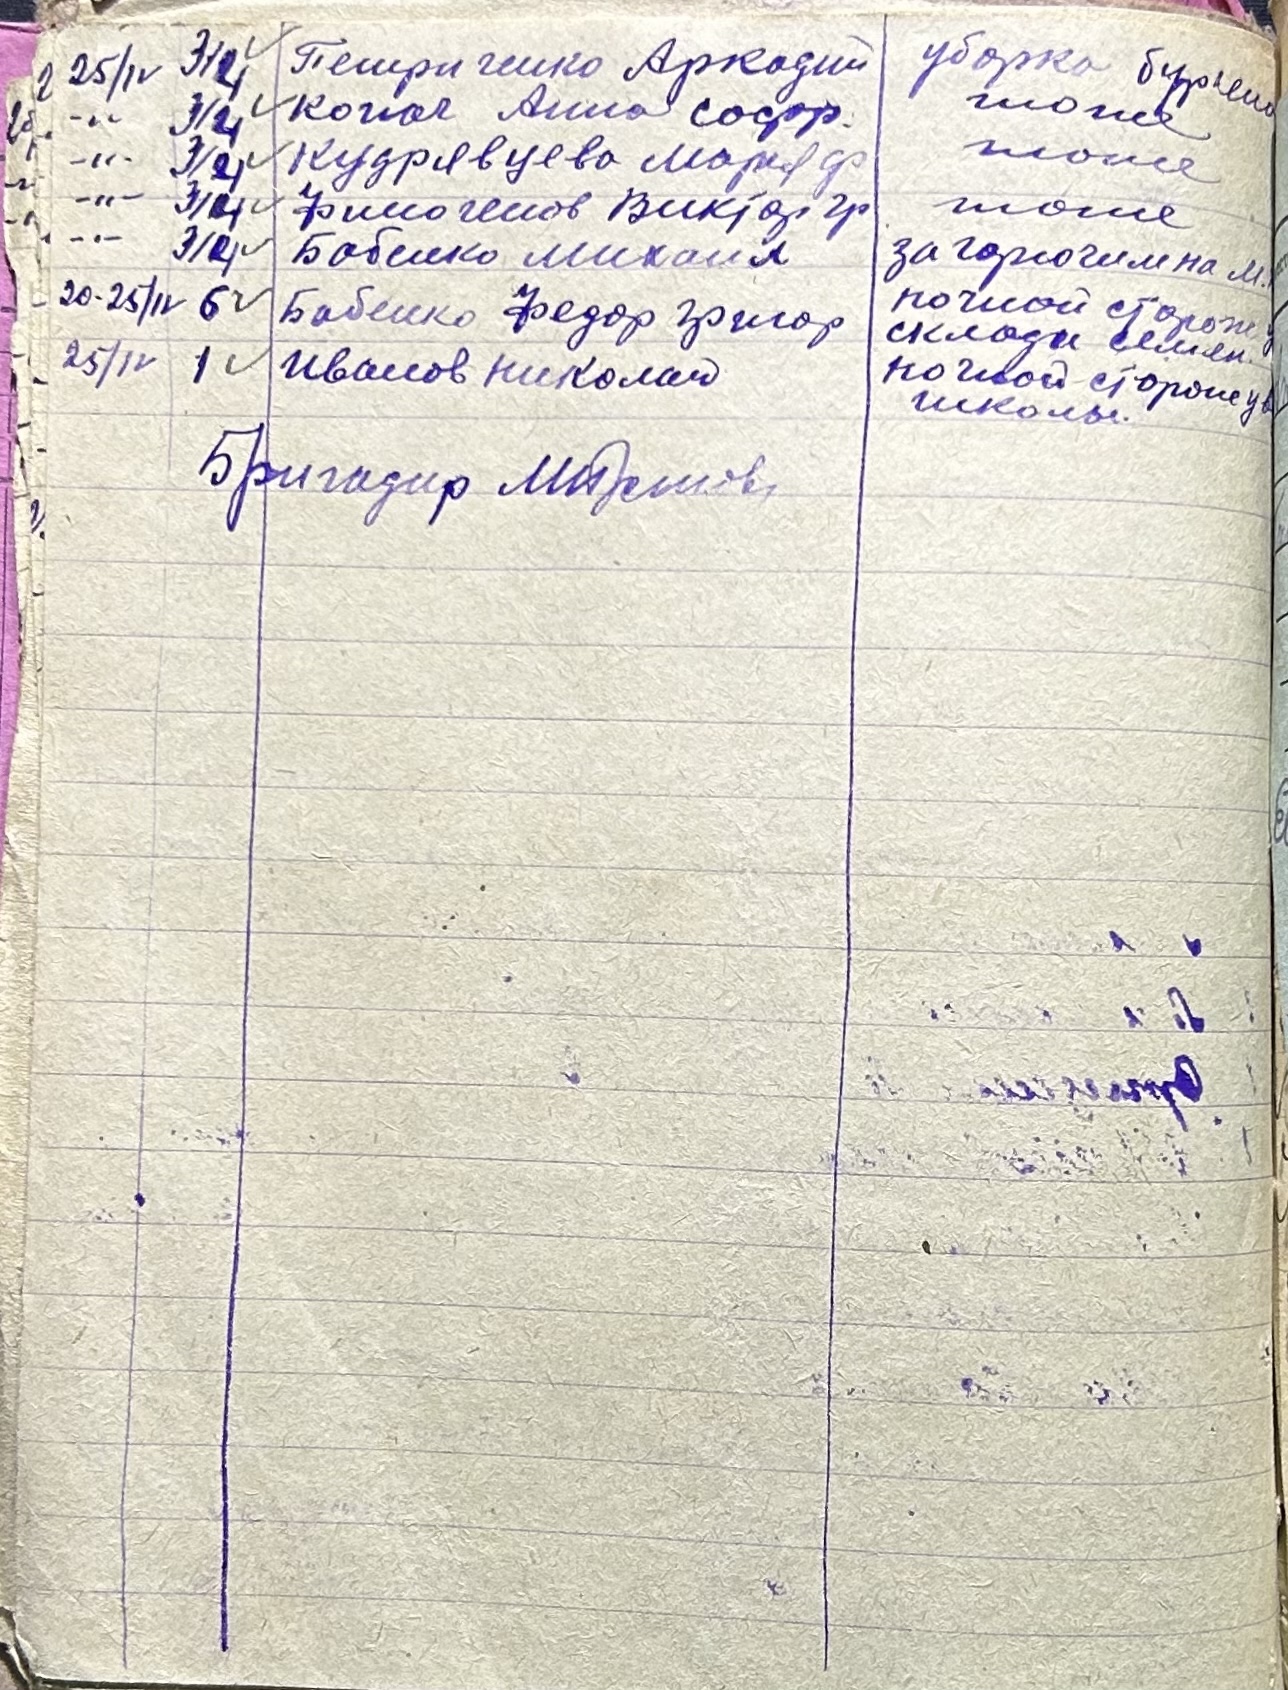 25/IV 3/4 ✓ Петриченко Аркадий уборка бурьяна
-"- 3/4 ✓ Копач Анна Софр. тоже
-"- 3/4 ✓ Кудрявцева Мария Ф тоже
-"- 3/4 ✓ Филогенов Виктор Гр тоже
-"- 3/4 ✓ Бабенко Михаил за горючим на М.
20-25/IV 6 ✓ Бабенко Федор Григор ночной сторож у
склада семян.
25/IV 1 ✓ Иванов Николай ночной сторож ув
школы.
Бригадир